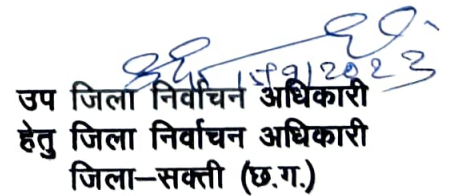 उप जिला निर्वाचन अधिकारी
हेतु जिला निर्वाचन अधिकारी
जिला–सक्ती (छ.ग.)